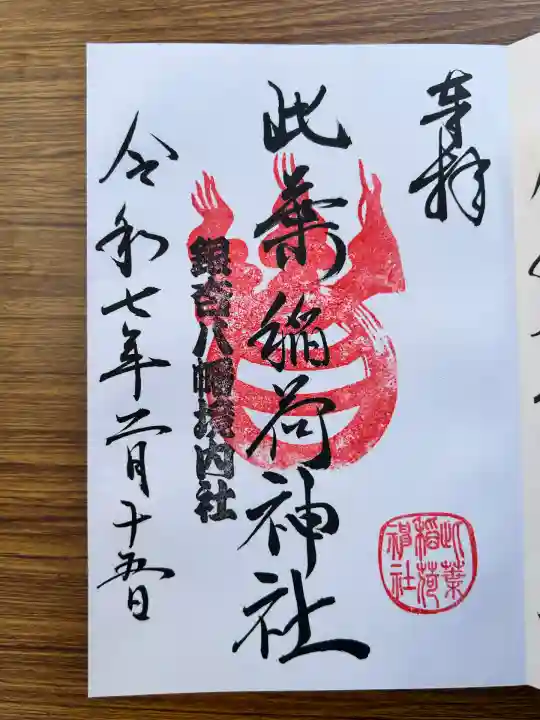 奉拝
此葉稲荷神社
鎮守八幡境内社
令和七年二月十五日
此葉
稲荷
神社